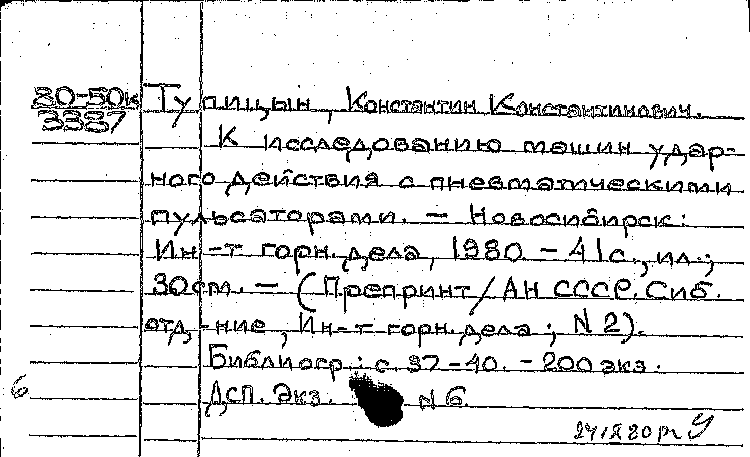 80-50к
3387
Тупицын, Константин Константинович.
К исследованию машин удар-
ного действия с пневматическими
пульсаторами. – Новосибирск:
Ин-т горн. дела, 1980 – 41 с., ил.;
30 см. – (Препринт / АН СССР. Сиб.
отд-ние, Ин-т горн. дела; N 2).
Библиогр.: с. 37-40. – 200 экз.
6
ДСП. Экз. N 6.